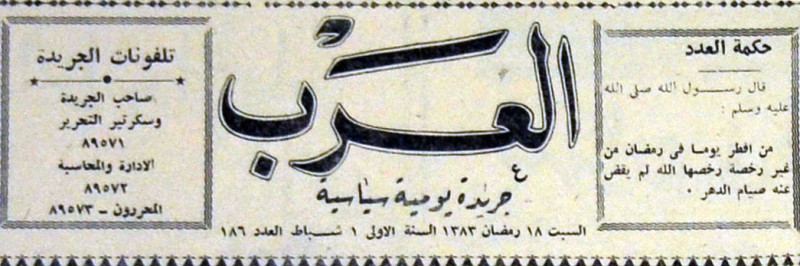 حكمة العدد
قال رســـول الله صلى الله
عليه وسلم :
من افطر يوما فى رمضان من
غير رخصة رخصها الله لم يقض
عنه صيام الدهر ٠
العرب
جريدة يومية سياسية
السبت ١٨ رمضان ١٣٨٣ السنة الاولى ١ شــباط العدد ١٨٦
تلفونات الجريدة
صاحب الجريدة
وسكرتير التحرير
٨٩٥٧١
الادارة والمحاسبة
٨٩٥٧٢
المحررون ــ ٨٩٥٧٣